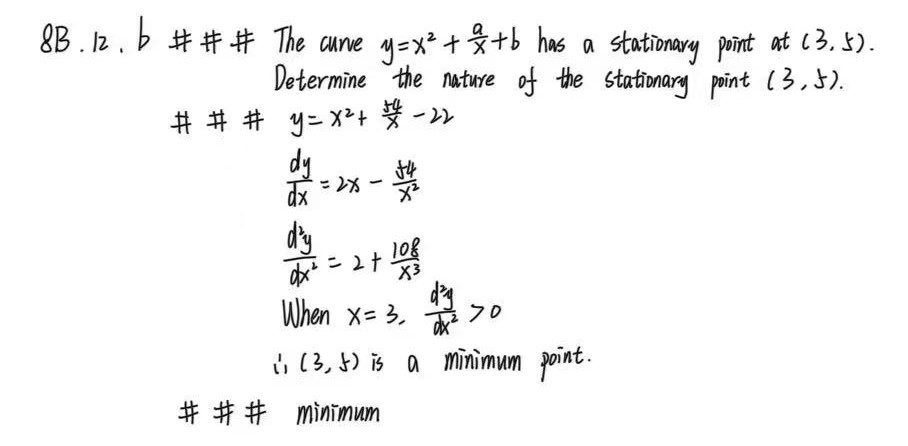 8B.12.b ### The curve y=x²+a/x+b has a stationary point at (3,5).
Determine the nature of the stationary point (3,5).
### y=x²+54/x-22
dy/dx=2x-54/x²
d²y/dx²=2+108/x³
When x=3, d²y/dx²>0
∴ (3,5) is a minimum point.
### minimum